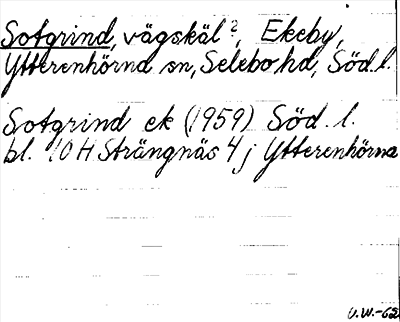 Sotgrind, vägskäl ?, Ekeby,
Ytterenhörnd sn, Selebo hd, Söd. l.
Sotgrind ek (1959) Söd. l.
bl. 10 H Strängnäs 4 j Ytterenhörna
U.W.-62